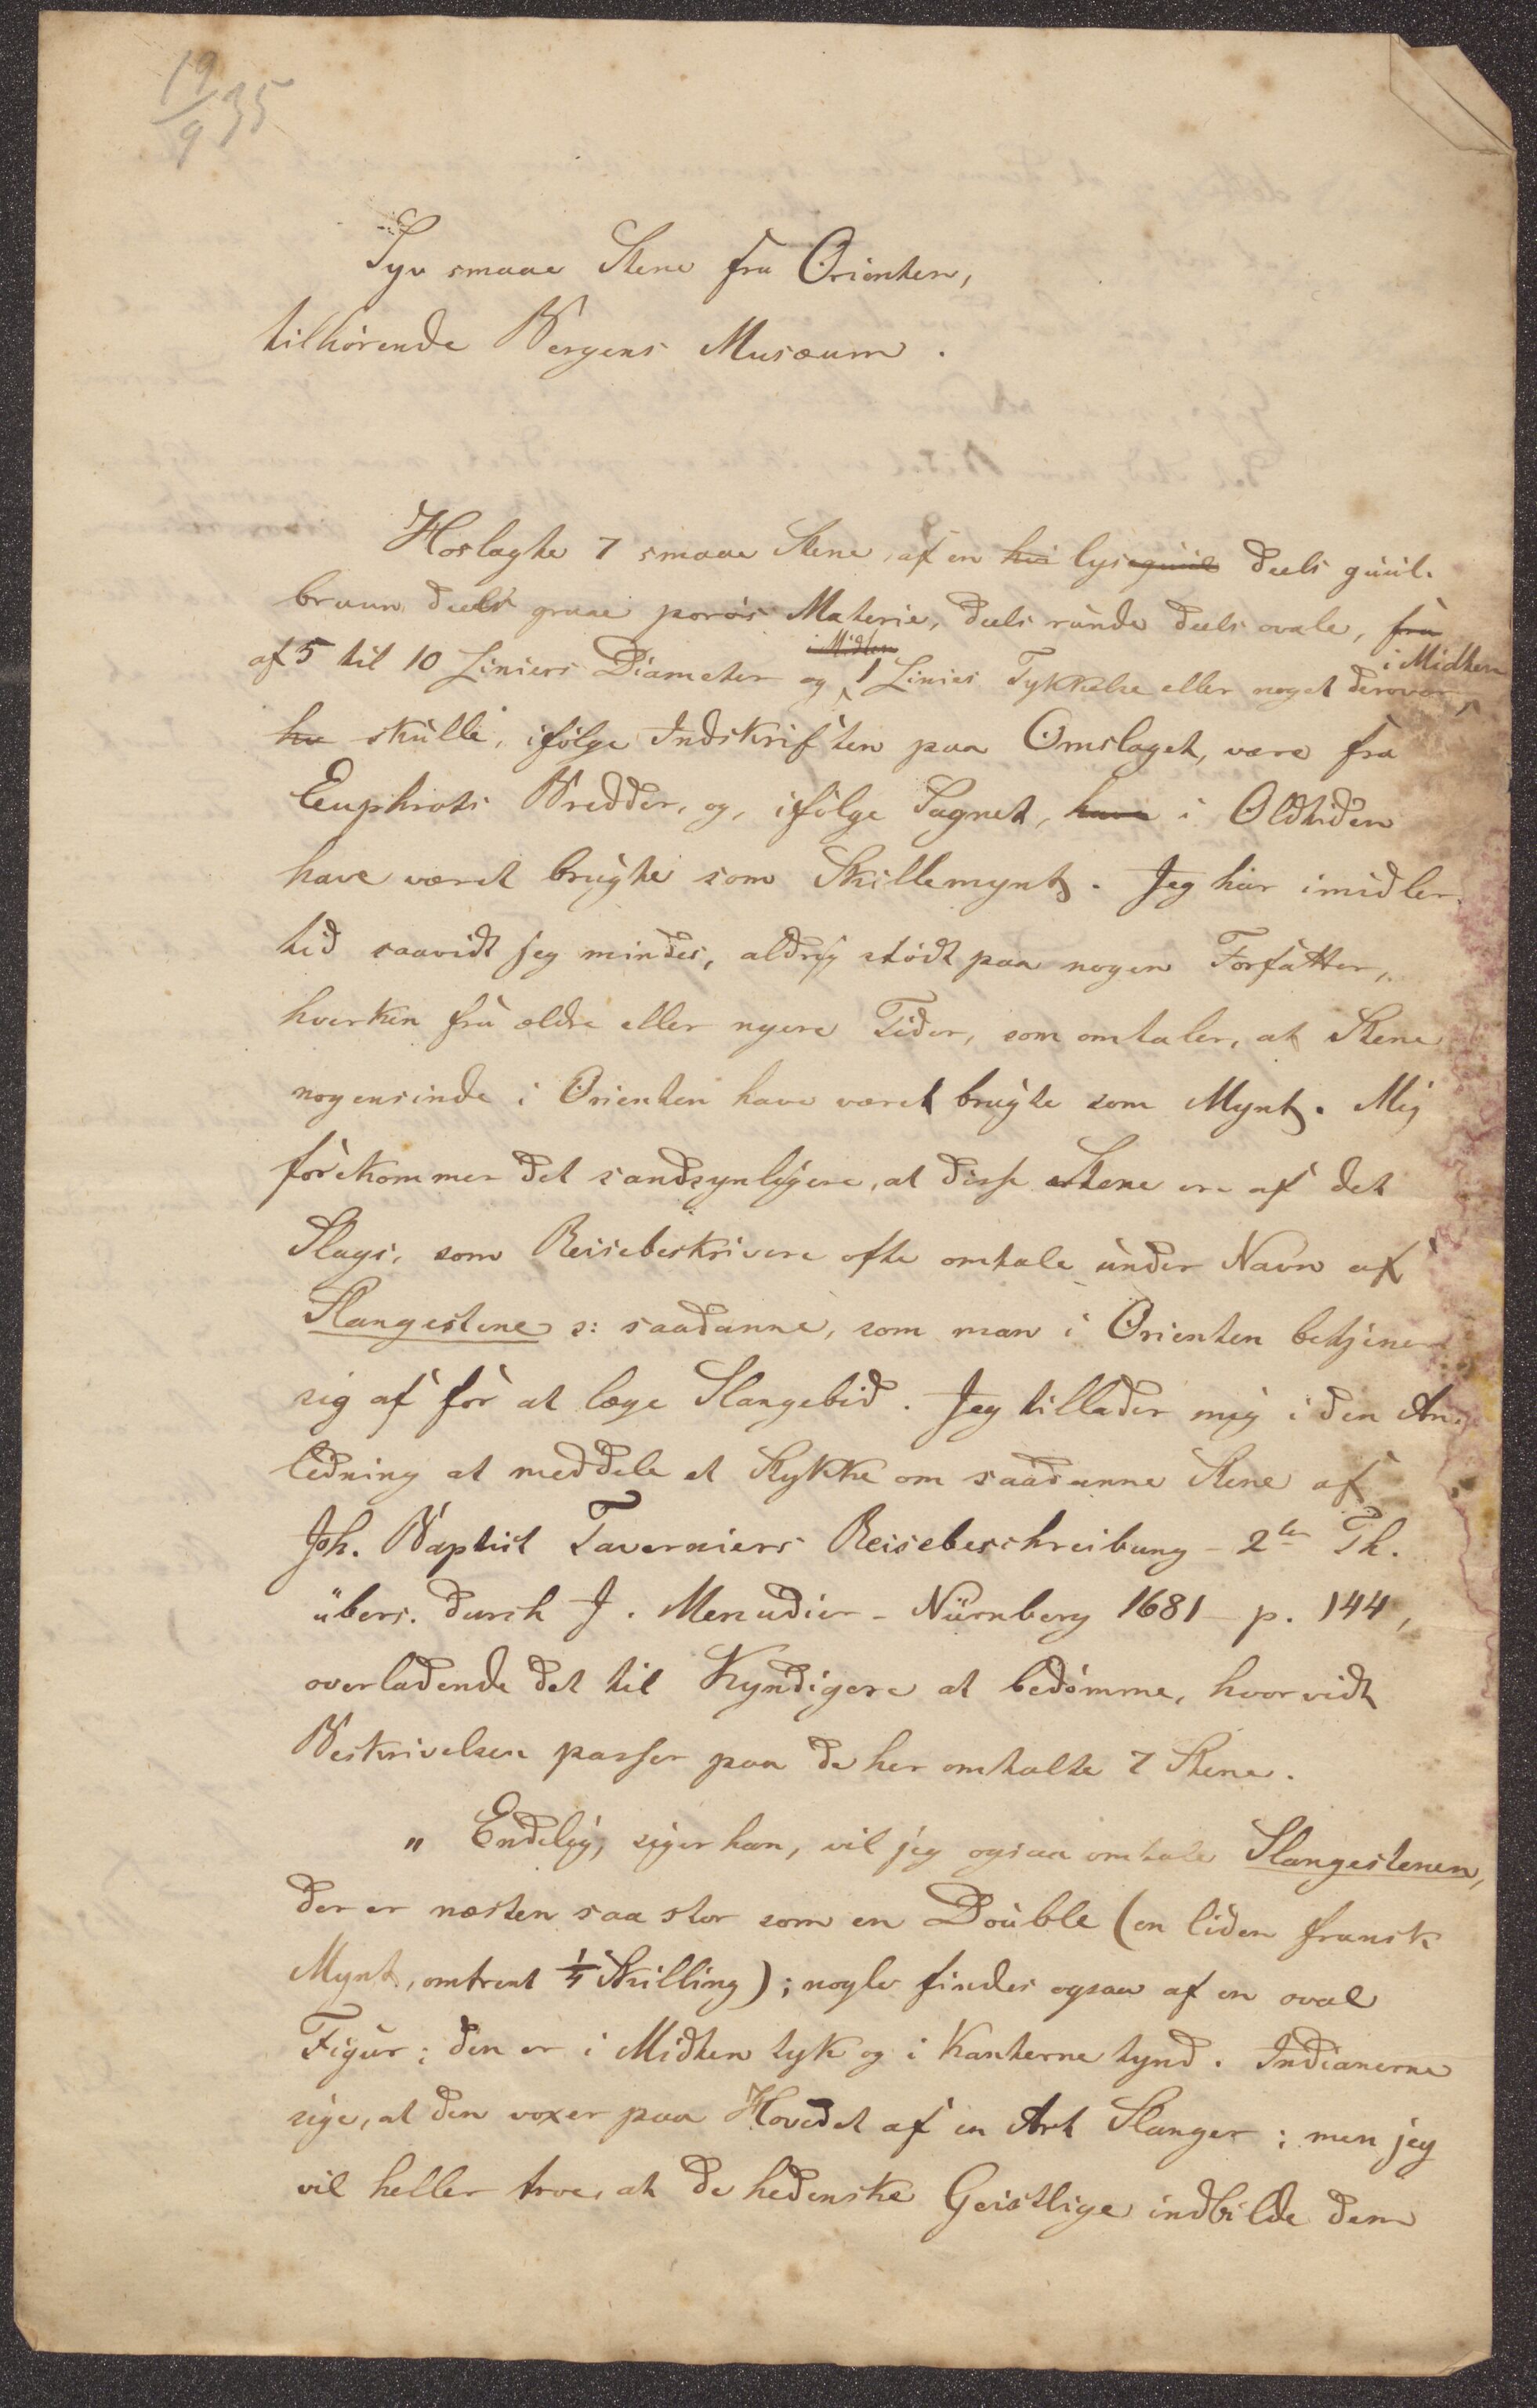 19/9 35
Syv smaae Stene fra Orienten,
tilhørende Bergens Musæum.
Hoslagte 7 smaae Stene, af en hvi lyseguul deels guul-
bruun deels graae porøs Materie, deels runde deels ovale, fra
af 5 til 10 Liniers Diameter og i Midten 1 Linies Tykkelse eller noget derover i Midten,
hv skulle, ifølge Indskriften paa Omslaget, være fra
Euphrats Bredder, og, ifølge Sagnet, have i Oldtiden
have været brugte som Skillemynt. Jeg har imidler-
tid saavidt jeg mindes, aldrig stødt paa nogen Forfatter,
hverken fra ældre eller nyere Tider, som omtaler, at Stene
nogensinde i Orienten have været brugte som Mynt. Mig
forekommer det sandsynligere, at disse Stene ere af det
Slags, som Reisebeskrivere ofte omtale under Navn af
Slangestene ɔ: saadanne, som man i Orienten betjener
sig af for at læge Slangebid. Jeg tillader mig i den An-
ledning at meddele et Stykke om saadanne Stene af
Joh. Baptist Taverniers Reisebeschreibung - 2ter Th.
übers. durch J. Menudier - Nürnberg 1681 - p. 144,
overladende det til Kyndigere at bedømme, hvorvidt
Beskrivelsen passer paa de her omtalte 7 Stene.
" Endelig, siger han, vil jeg ogsaa omtale Slangestenen,
der er næsten saa stor som en Double (en liden fransk
Mynt, omtrent ¼ Skilling); nogle findes ogsaa af en oval
Figur; den er i Midten tyk og i Kanterne tynd. Indianerne
sige, at den voxer paa Hovedet af en Art Slanger; men jeg
vil heller troe, at de hedenske Geistlige indbilde dem